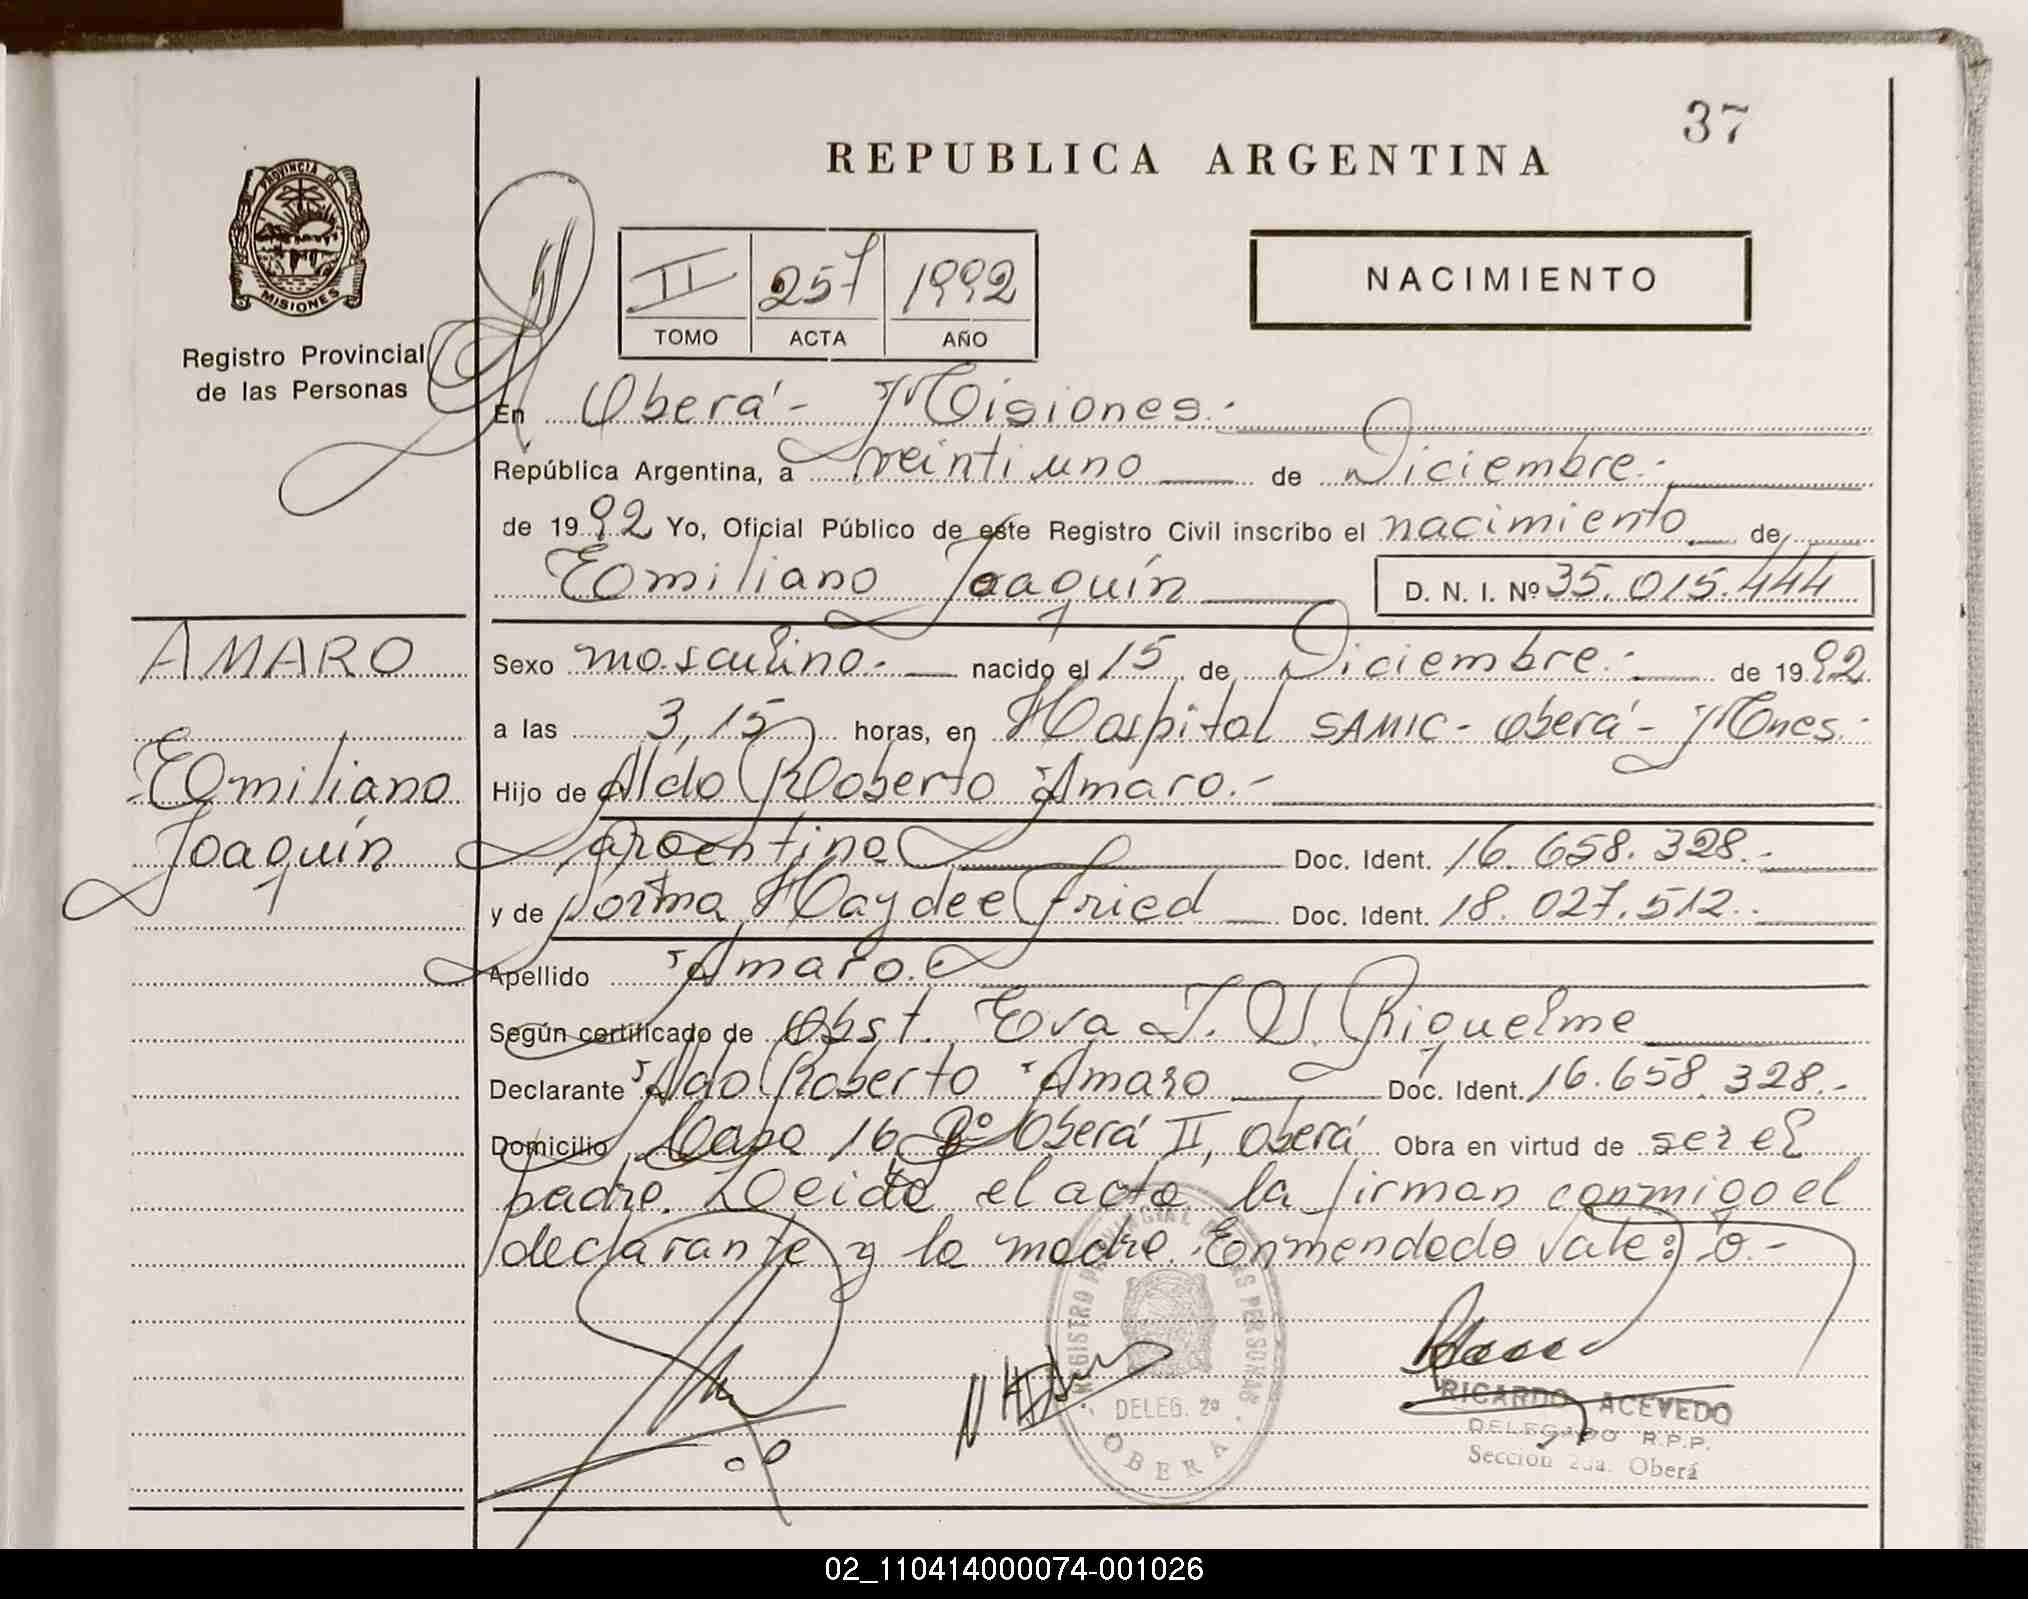 37
REPUBLICA ARGENTINA
PROVINCIA DE
MISIONES
Registro Provincial
de las Personas
II 257 1992
TOMO ACTA AÑO
NACIMIENTO
En Oberá - Misiones.-
República Argentina, a veintiuno de Diciembre.-
de 1992 Yo, Oficial Público de este Registro Civil inscribo el nacimiento de
Emiliano Joaquín D. N. I. Nº 35.015.444
AMARO
Emiliano
Joaquín
Sexo masculino.- nacido el 15 de Diciembre.- de 1992
a las 3,15 horas, en Hospital SAMIC - Oberá - Mnes.-
Hijo de Aldo Roberto Amaro.-
Argentino Doc. Ident. 16.658.328.-
y de Norma Haydee Fried Doc. Ident. 18.027.512.-
Apellido Amaro.
Según certificado de Obst. Eva T. D. Riquelme
Declarante Aldo Roberto Amaro Doc. Ident. 16.658.328.-
Domicilio Casa 16 Bº Oberá II, Oberá Obra en virtud de ser el
padre. Leida el acta la firman conmigo el
declarante y la madre. Enmendado Vale: o.-
REGISTRO PROVINCIAL DE LAS PERSONAS
DELEG. 2ª
OBERA
RICARDO ACEVEDO
DELEGADO R.P.P.
Sección 2da. Oberá
02_110414000074-001026